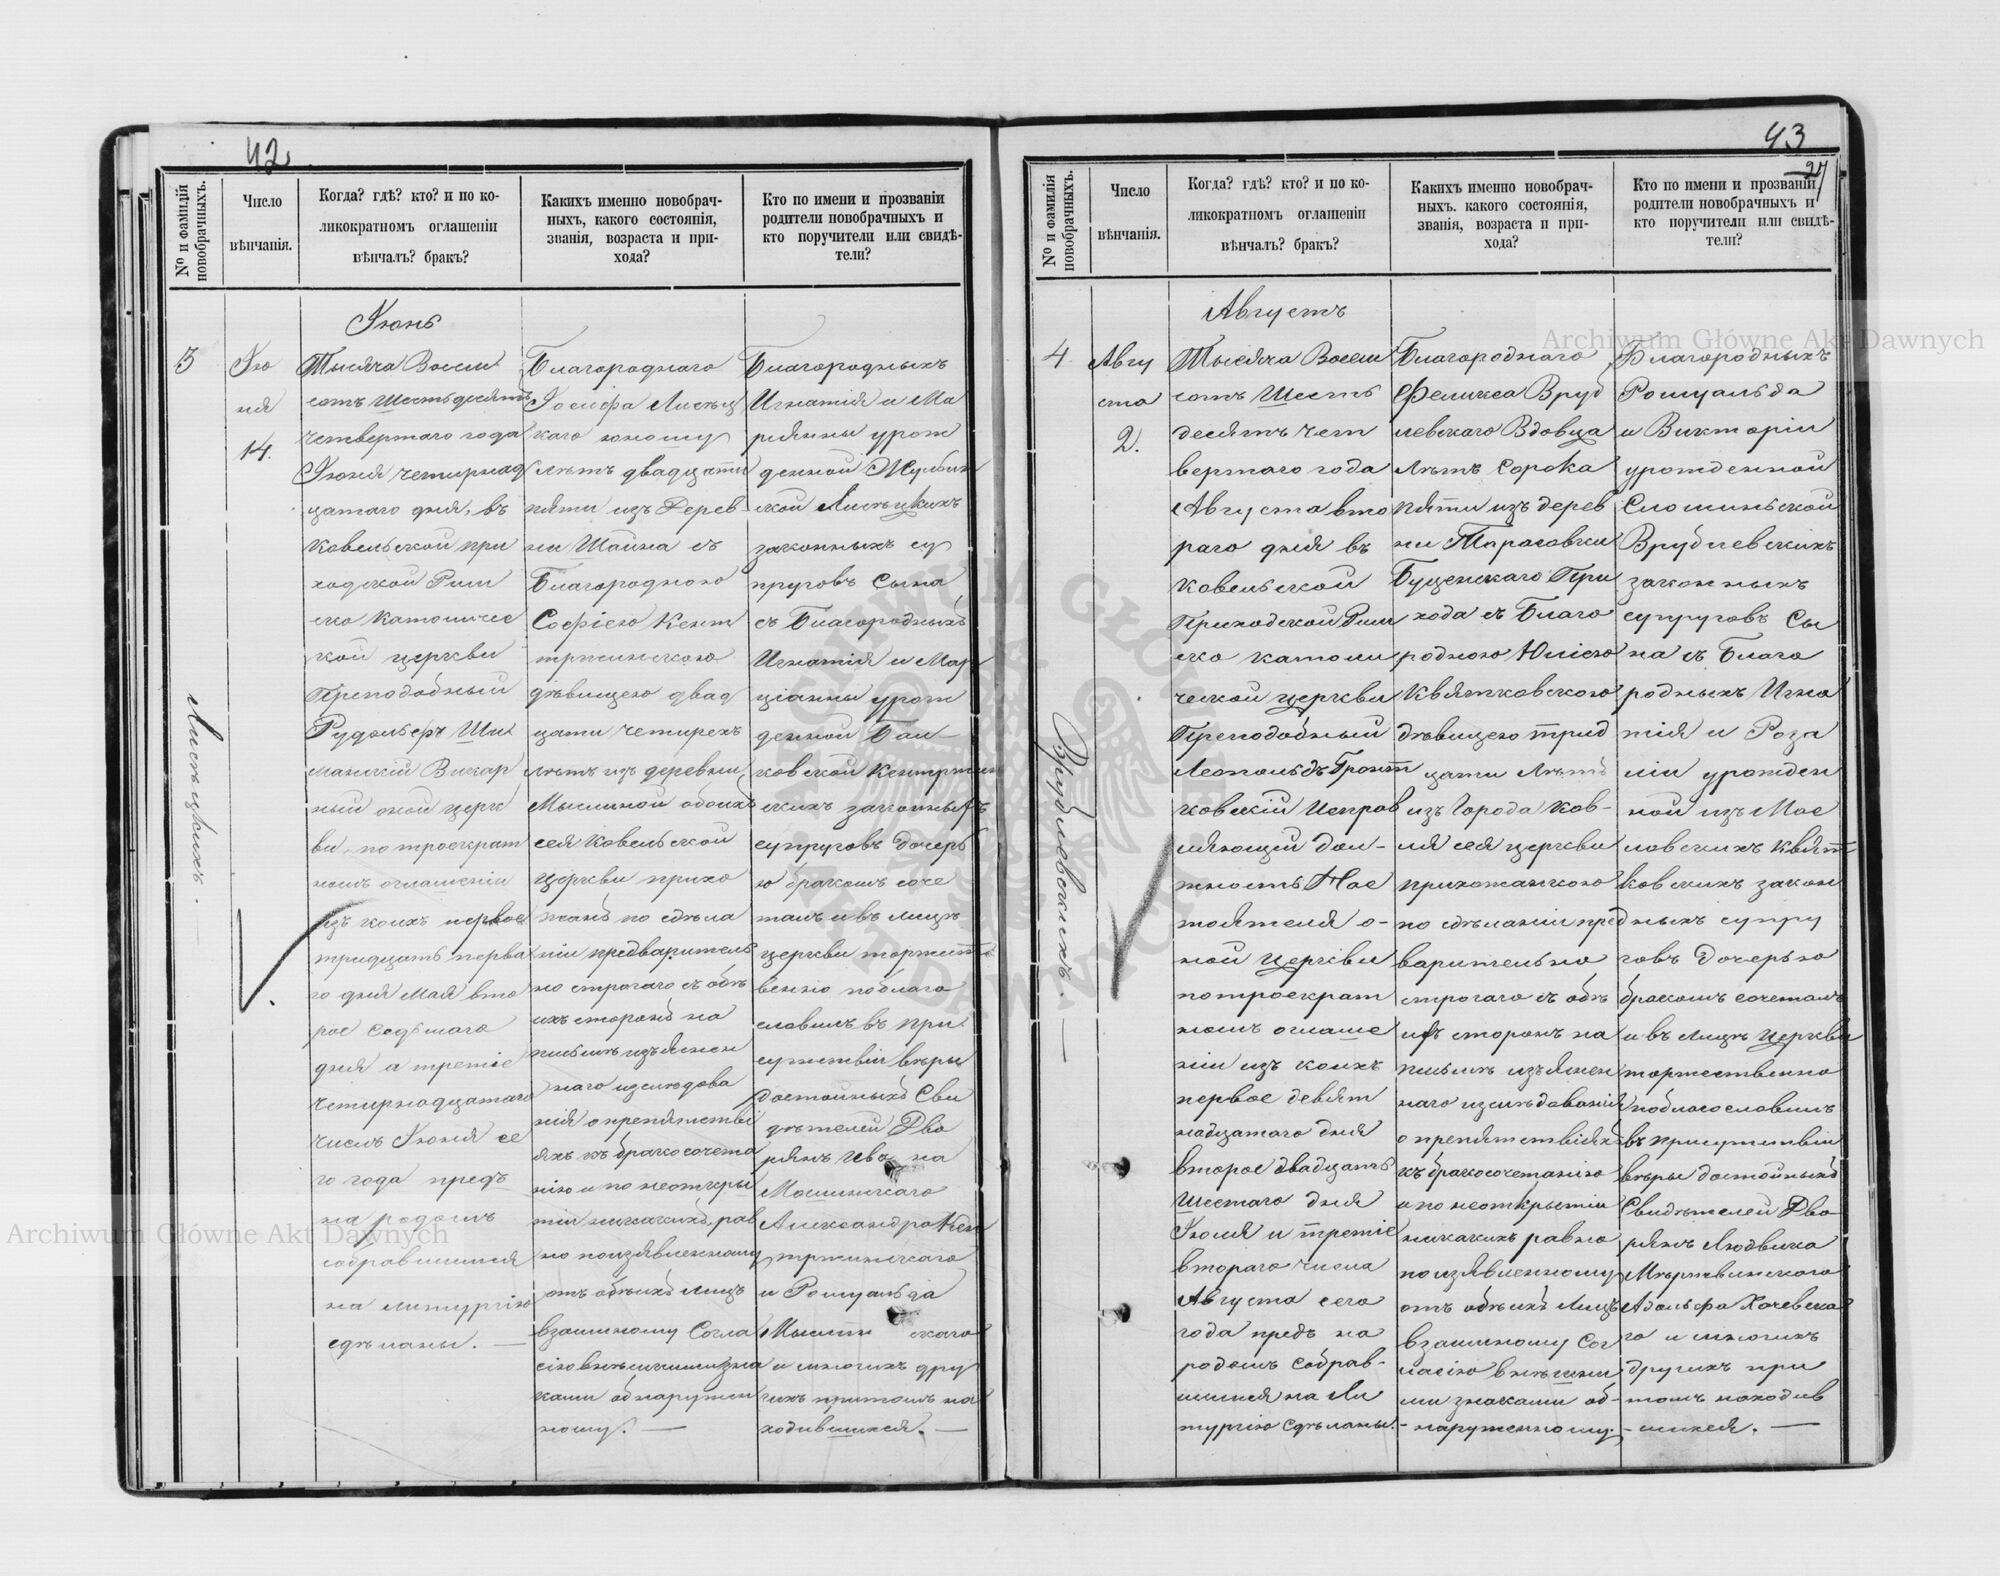 42
№ и фамилія новобрачныхъ.
Число
вѣнчанія.
Когда? гдѣ? кто? и по ко-
ликократномъ оглашеніи
вѣнчалъ? бракъ?
Какихъ именно новобрач-
ныхъ, какого состоянія,
званія, возраста и при-
хода?
Кто по имени и прозваніи
родители новобрачныхъ и
кто поручители или свидѣ-
тели?
3
Лисѣцкихъ.
Ію
ня
14.
Іюнь
Тысяча Восемь
сотъ Шестьдесятъ
четвертаго года
Іюня четирнад
цатаго дня, въ
Ковельской при
ходской Рим
ско Католичес
кой церкви
Преподобный
Рудольфъ Ши
манскій Викар
ный оной церк
ви, по троекрат
номъ оглашеніи
изъ коихъ первое
тридцать перва
го дня Мая вто
рое Седьмаго
дня а третіе
Четирнадцатаго
Числъ Іюня се
го года предъ
народомъ
собравшимся
на литургію
сдѣланы. —
Благороднаго
Іосифа Лисѣц
каго юношу
лѣтъ двадцати
пяти изъ Дерев
ни Шайна съ
Благородною
Софіею Кент
тржинскою
дѣвицею двад
цати четирехъ
лѣтъ изъ деревни
Мыслиной обоихъ
сея Ковельской
Церкви прихо
жанъ по сдѣла
ніи предваритель
но строгаго съ обѣ
ихъ сторонъ на
письмѣ изъяснен
наго изслѣдова
нія о препятстві
яхъ къ бракосочета
нію и по неоткры
тіи никакихъ, рав
но по изявленному
отъ обѣихъ Лицъ
взаимному Согла
сію внѣшними зна
ками обнаружен
ному. —
Благородныхъ
Игнатія и Ма
ріянны урож
денной Жулин
ской Лисѣцкихъ
законныхъ су
пруговъ Сына
съ Благородныхъ
Игнатія и Мар
ціанны урож
денной Бал—
ковской Кентржин
скихъ законныхъ
супруговъ дочерь
ю бракомъ соче
талъ и въ лицѣ
церкви торжест
венно поблаго
славилъ въ при
сутствіи вѣры
достойныхъ Сви
дѣтелей Дво
рянъ Ивана
Мошинскаго
Александра Кен
тржинскаго
и Ромуальда
Мысли скаго
и многихъ дру
гихъ притомъ на
ходившихся. —
43
27
№ и фамилія новобрачныхъ.
Число
вѣнчанія.
Когда? гдѣ? кто? и по ко-
ликократномъ оглашеніи
вѣнчалъ? бракъ?
Какихъ именно новобрач-
ныхъ. какого состоянія,
званія, возраста и при-
хода?
Кто по имени и прозваніи
родители новобрачныхъ и
кто поручители или свидѣ-
тели?
4
Врублевскихъ. —
Авгу
ста
2.
Августъ
Тысяча Восемь
сотъ Шесть
десятъ чет
вертаго года
Августа вто
раго дня въ
Ковельской
Приходской Рим
ско католи
ческой церкви
Преподобный
Леопольдъ Бронт
ковскій Исправ
ляющій дол-
жность Нас
тоятеля о-
ной Церкви
по троекрат
номъ оглаше
ніи изъ коихъ
первое девят
надцатаго дня
второе двадцать
Шестаго дня
Іюля и третіе
втораго числа
Августа сего
года предъ на
родомъ Собрав-
шимся на Ли
тургію Сдѣланы.
Благороднаго
Феликса Вруб
левскаго Вдовца
лѣтъ Сорока
пяти изъ дерев
ни Тарасовки
Буценскаго При
хода съ Благо
родною Юліею
Квятковскою
дѣвицею трид
цати лѣтъ
изъ Города Ков-
ля сея церкви
прихожанкою
по сдѣланіи пред
варительно
строгаго съ обѣ
ихъ сторонъ на
письмѣ изъяснен
наго изслѣдованія
о препятствіяхъ
къ бракосочетанію
и по неоткрытіи
никакихъ равно
по изявленному
отъ обѣихъ Лицъ
взаимному Сог
ласію внѣшни
ми знаками об-
наруженному.
Благородныхъ
Ромуальда
и Викторіи
урожденной
Сломинской
Врублевскихъ
законныхъ
супруговъ Сы
на съ Благо
родныхъ Игна
тія и Роза
ліи урожден
ной изъ Мас
ловскихъ Квят
ковскихъ закон
ныхъ супру
говъ Дочерью
бракомъ сочеталъ
и въ Лицѣ Церкви
торжественно
поблагословилъ
въ присутствіи
вѣры достойныхъ
Свидѣтелей Дво
рянъ Людвика
Мѣржвинскаго
Адольфа Хачевска
го и многихъ
другихъ при
томъ находив
шихся. —
Archiwum Główne Akt Dawnych
Archiwum Główne Akt Dawnych
ARCHIWUM GŁÓWNE AKT DAWNYCH